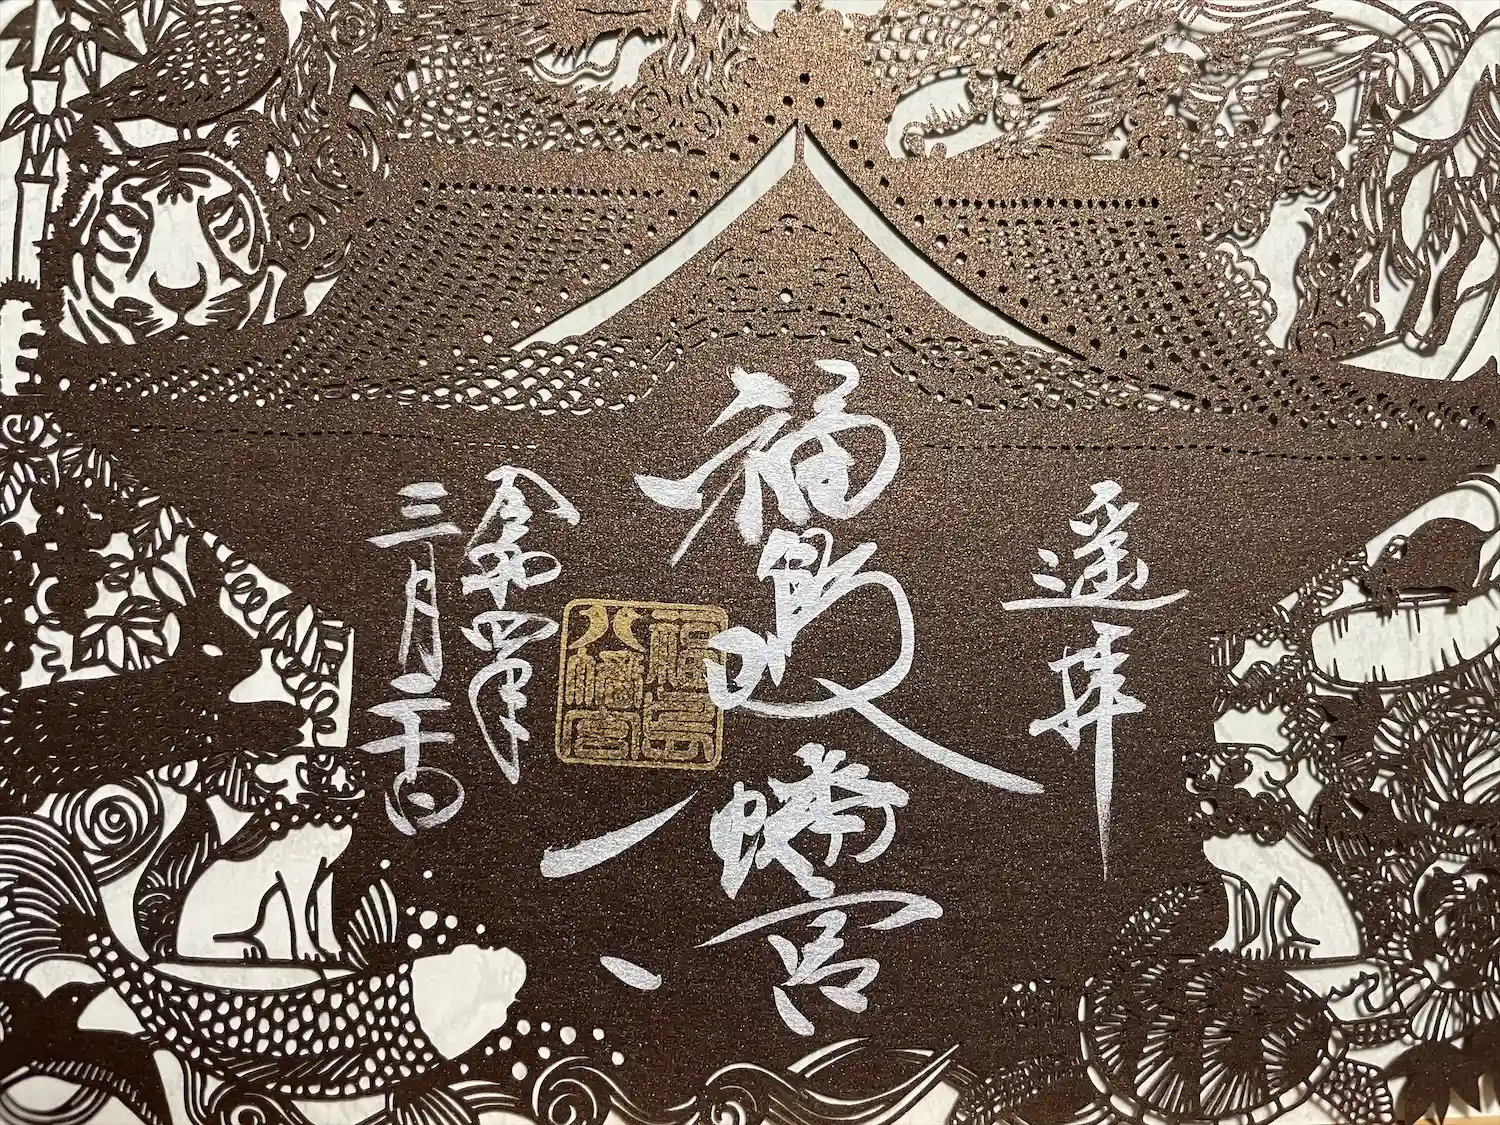 遥拝
福島八幡宮
令和四年
三月二十日
福島
八幡宮